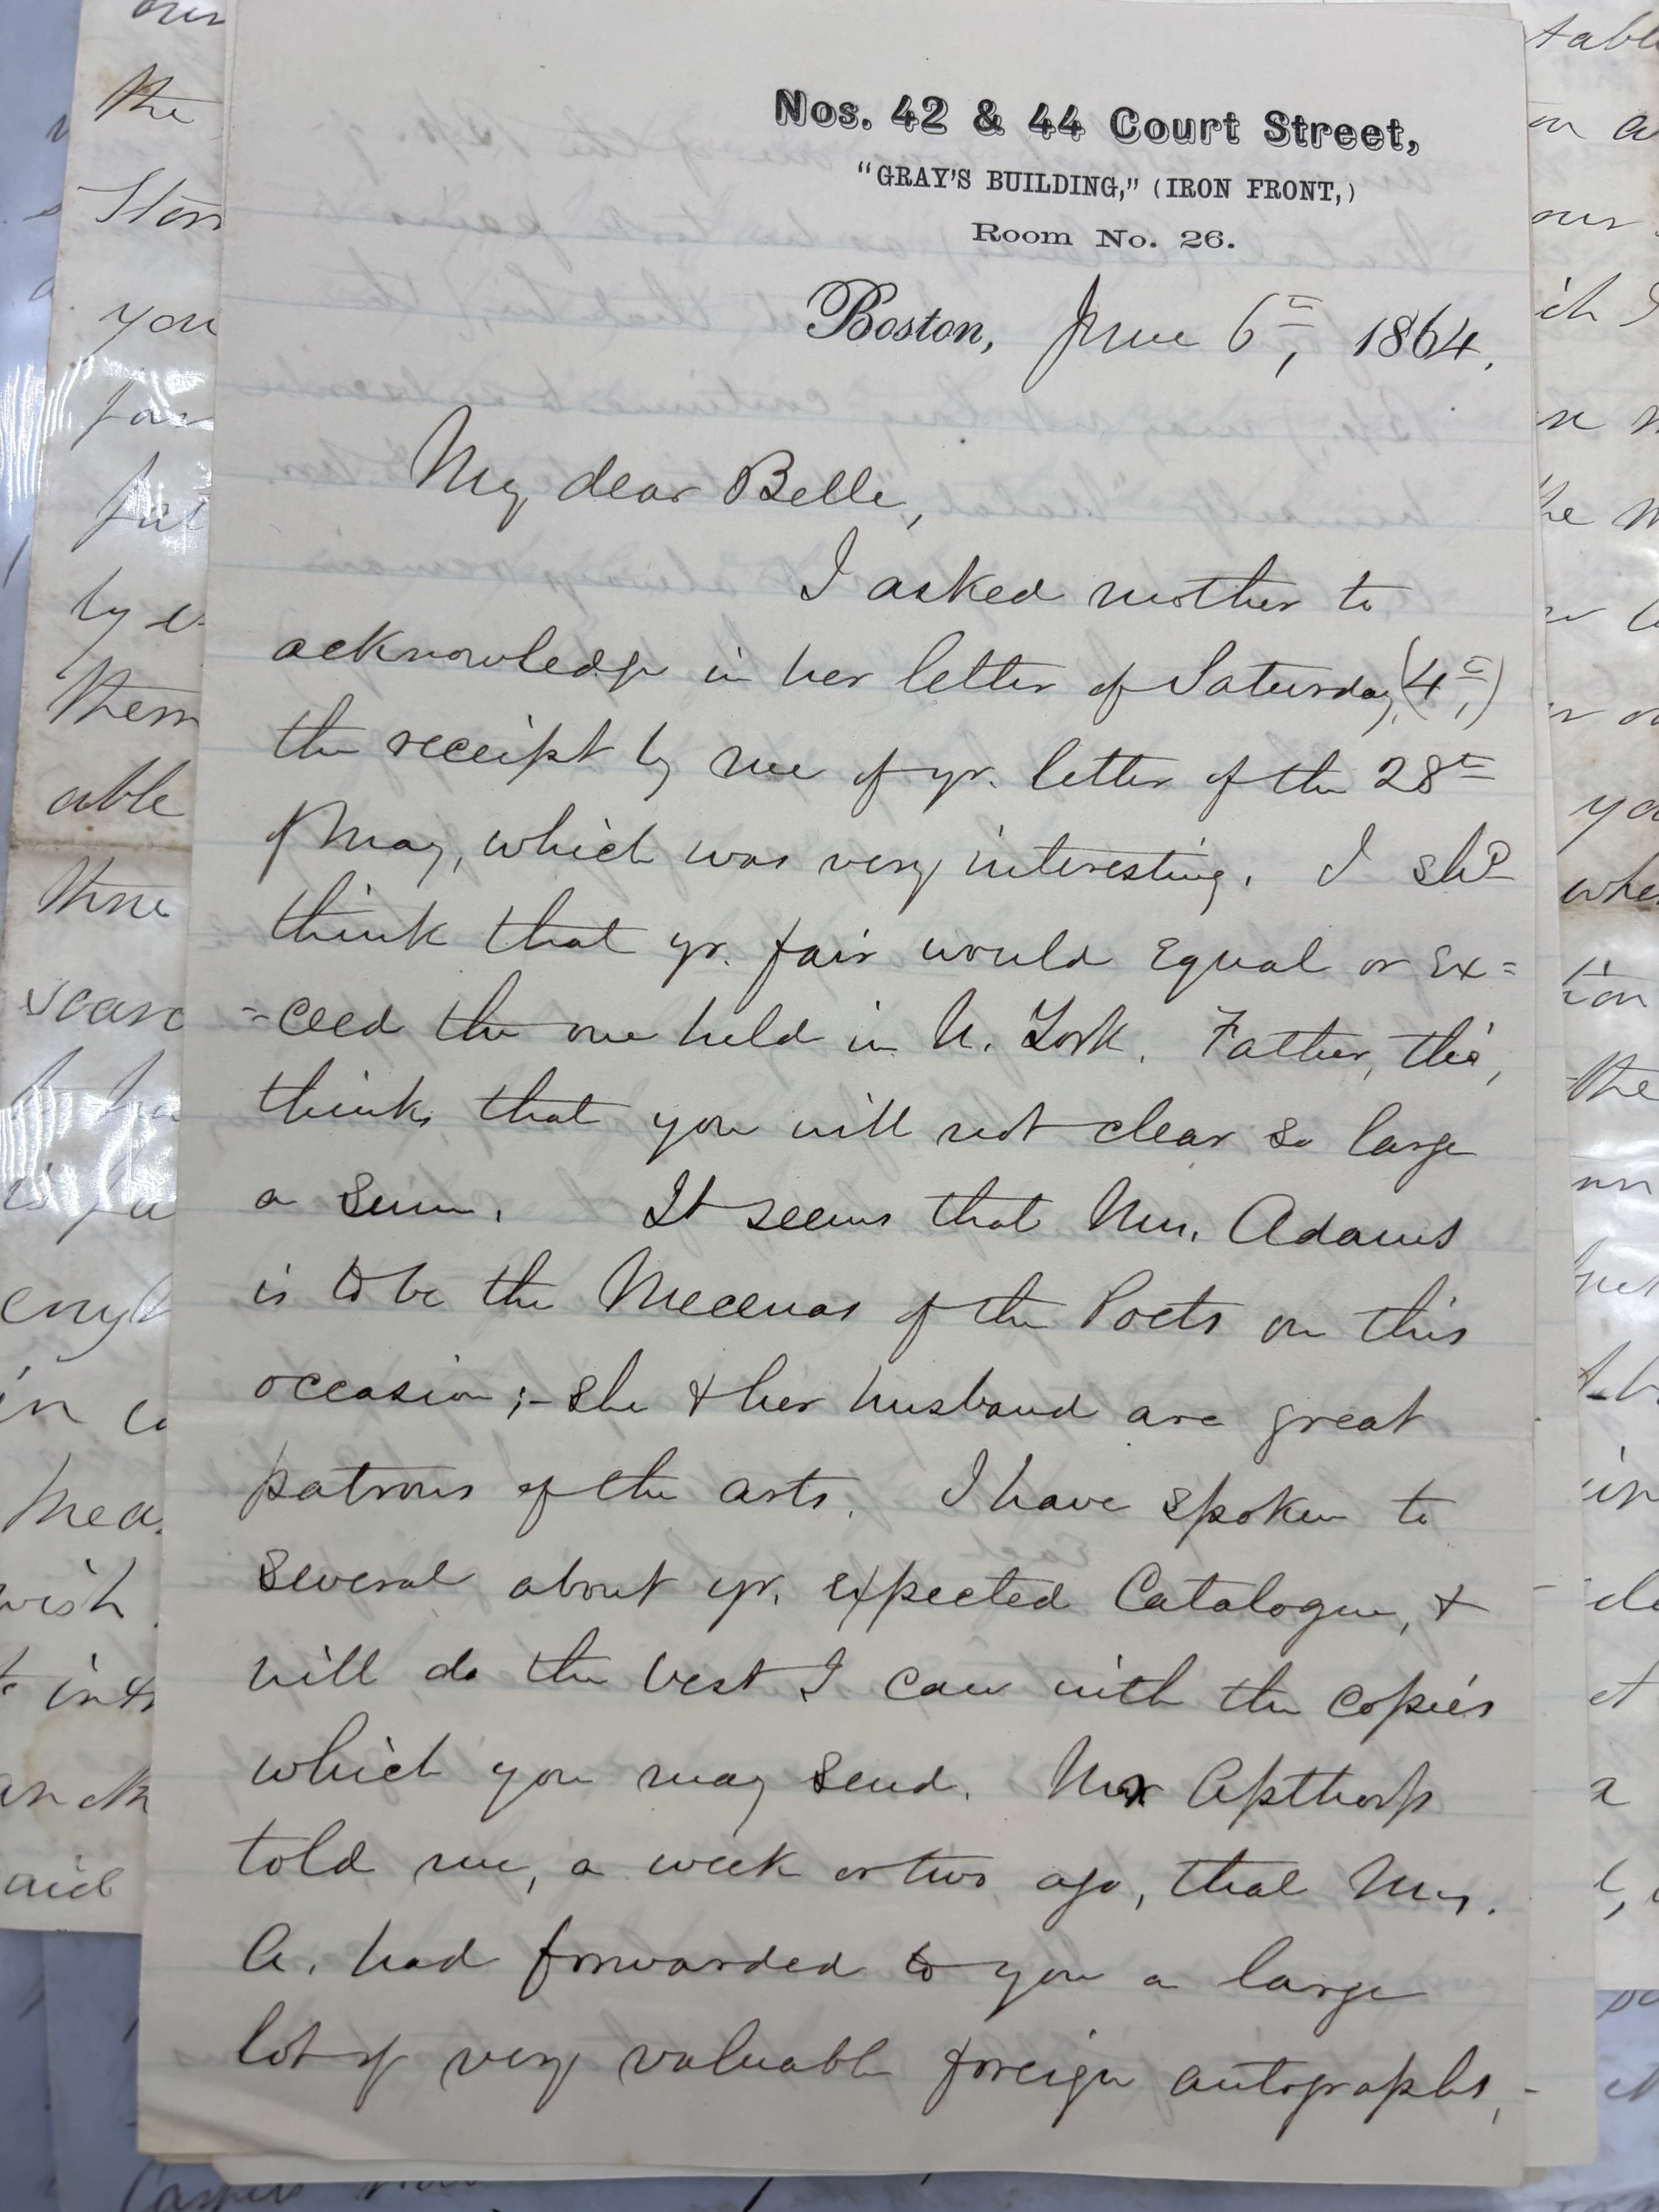 Nos. 42 & 44 Court Street,
"GRAY'S BUILDING," (IRON FRONT,)
Room No. 26.
Boston, June 6th, 1864.
My dear Belle,
I asked mother to
acknowledge in her letter of Saturday, (4th,)
the receipt by me of yr. letter of the 28th
of May, which was very interesting. I shd
think that yr. fair would equal or ex=
=ceed the one held in N. York. Father, tho',
thinks that you will not clear so large
a sum. It seems that Mrs. Adams
is to be the Mecenas of the Poets on this
occasion;- she & her husband are great
patrons of the arts. I have spoken to
several about yr. expected Catalogue, &
will do the best I can with the copies
which you may send. Mr Apthorp
told me, a week or two ago, that Mrs.
A. had forwarded to you a large
lot of very valuable foreign autographs,-
the
you
by
them
able
wish
table
the